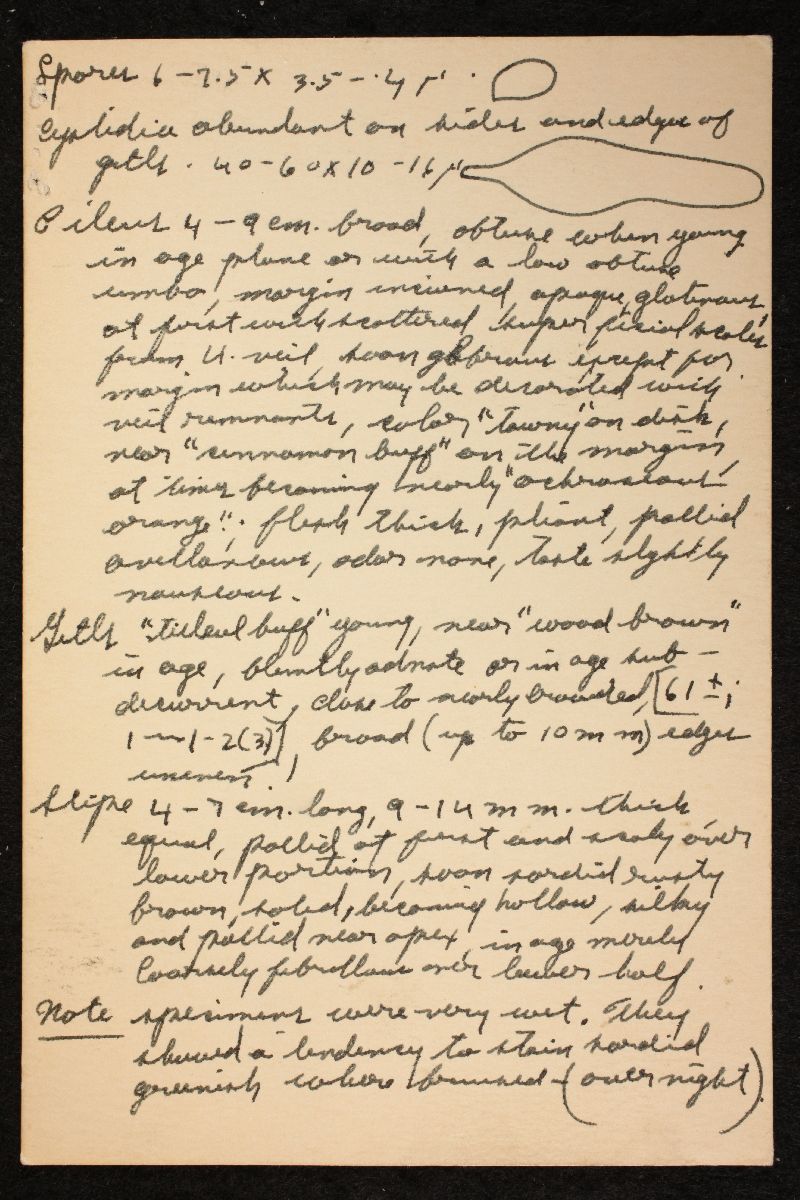 Spores 6-7.5 x 3.5-4 µ.
Cystidia abundant on sides and edges of
gills. 40-60 x 10-16 µ
Pileus 4-9 cm. broad, obtuse when young
in age plane or with a low obtuse
umbo, margin incurved, opaque, glutinous,
at first with scattered superficial scales
from U. veil, soon glabrous except for
margin which may be decorated with
veil remnants, color "tawny" on disk,
near "cinnamon buff" on the margin,
at times becoming nearly "ochraceous
orange"; flesh thick, pliant, pallid
avellaneous, odor none, taste slightly
nauseous.
Gills "tilleul buff" young, near "wood brown"
in age, bluntly adnate or in age sub-
decurrent, close to nearly crowded, [61 ±;
1-1-2(3)], broad (up to 10 mm) edges
uneven.
Stipe 4-7 cm. long, 9-14 mm. thick
equal, pallid at first and scaly over
lower portion, soon sordid rusty
brown, solid, becoming hollow, silky
and pallid near apex, in age merely
coarsely fibrillose over lower half.
Note specimens were very wet. They
showed a tendency to stain sordid
greenish where bruised - (over night).